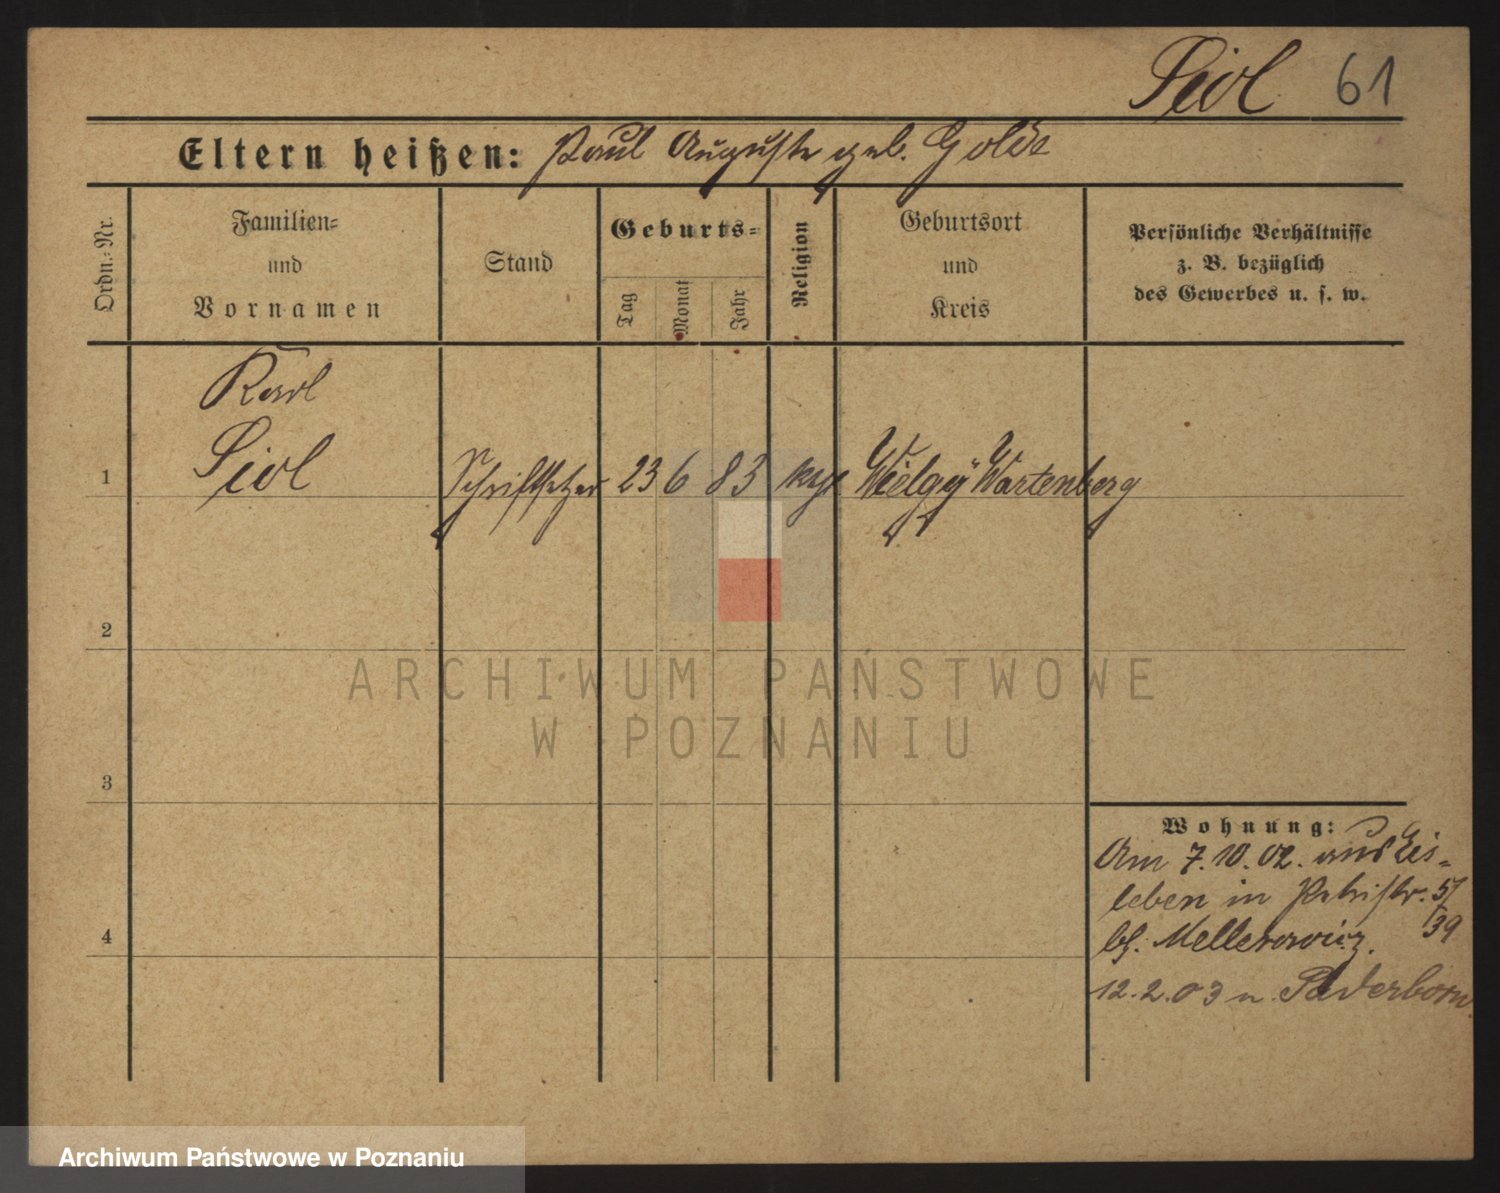 Seidl 61
Eltern heißen: Paul Auguste geb. Golde
Ordn.-Nr.
Familien-
und
Vornamen
Stand
Geburts-
Tag
Monat
Jahr
Religion
Geburtsort
und
Kreis
Persönliche Verhältnisse
z. B. bezüglich
des Gewerbes u. s. w.
Karl
1 Schriftsetzer 23 6 83 Wartenberg
2
3
4
Wohnung:
Am 7.10.02. aus Eis-
leben in Petristr. 5/
bf. Mellerowicz. 39
12.2.03 n. Paderborn.
ARCHIWUM PAŃSTWOWE
W POZNANIU
Archiwum Państwowe w Poznaniu